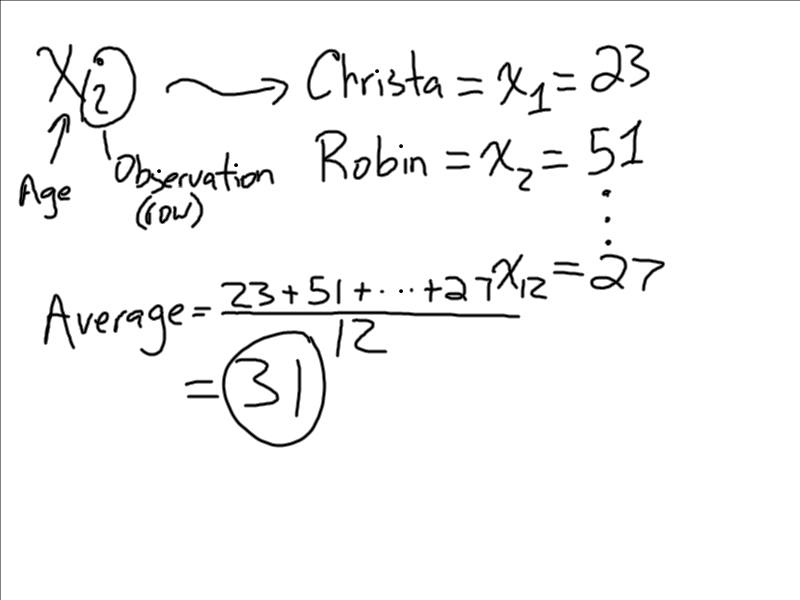 X₂ → Christa = x₁ = 23
Age
Observation
(row)
Robin = x₂ = 51
⋮
x₁₂ = 27
Average = 23 + 51 + ··· + 27 / 12
= 31